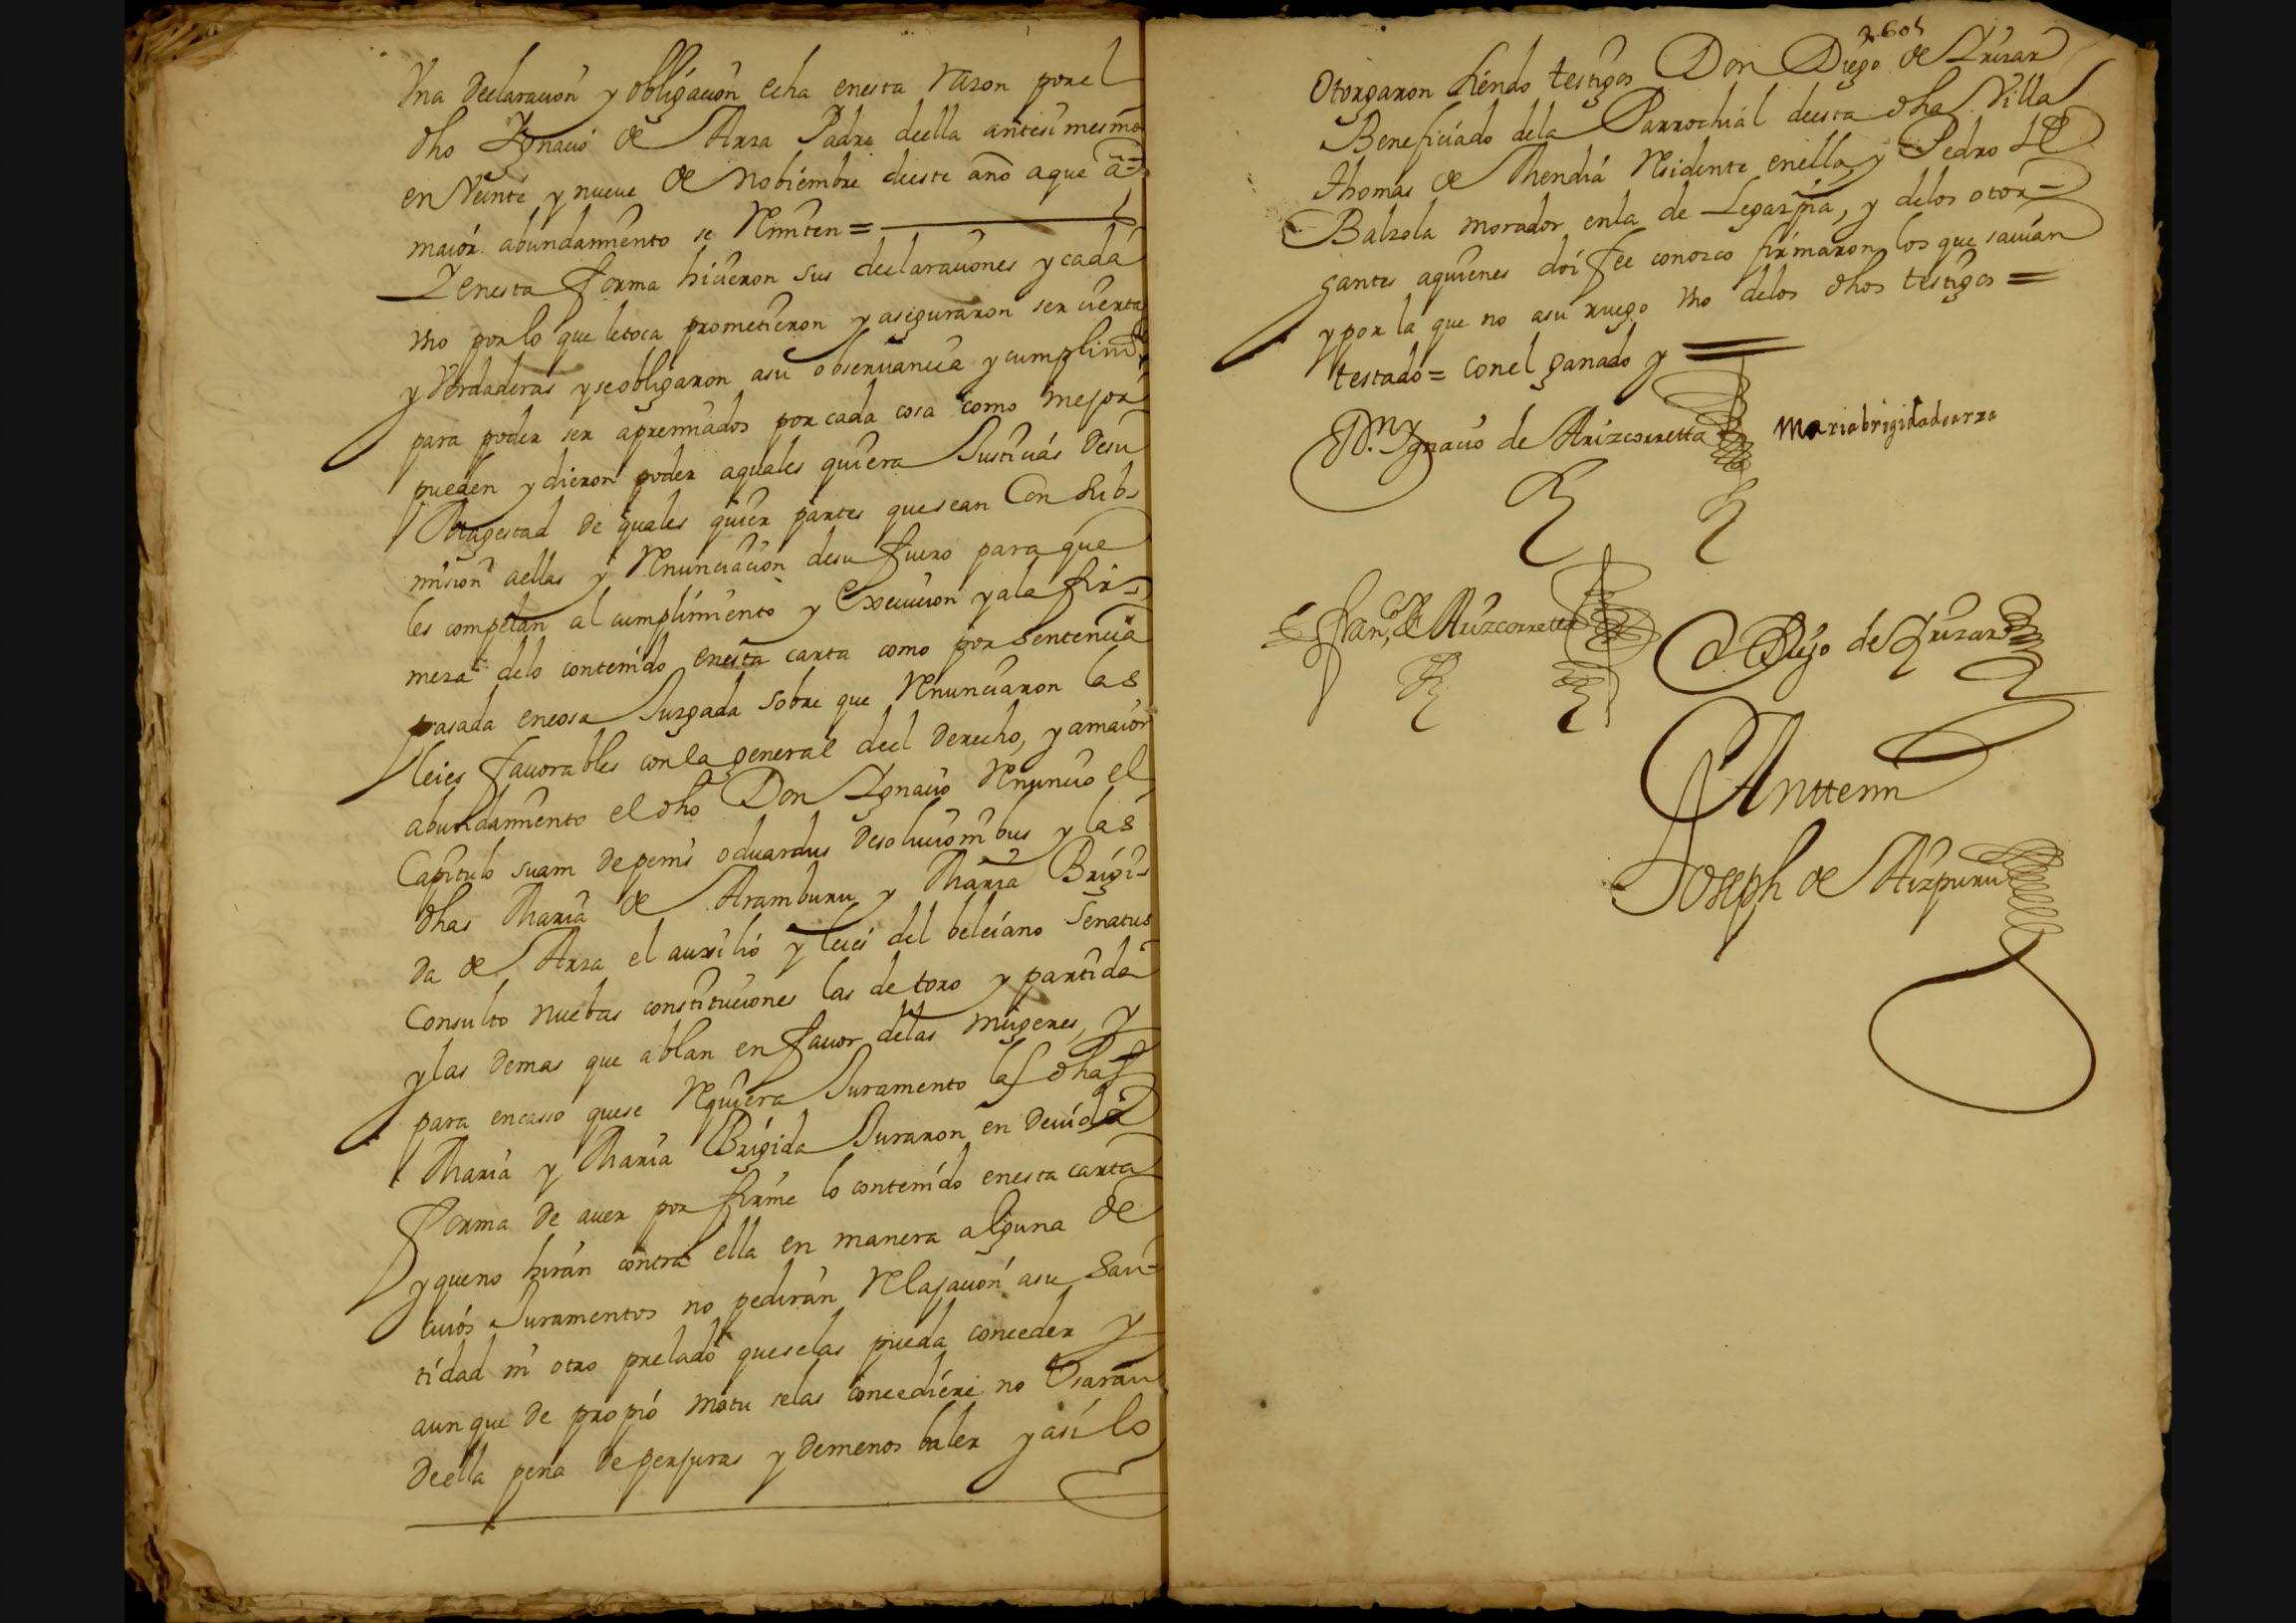 Vna declaracion y obligacion echa enesta razon por el
dho Ygnacio de Arza Padre deella antesimesmo
en Veinte y nueue de nobiembre deeste año aque a=
maior abundamiento se Remiten =
Y enesta forma hicieron sus declaraciones y cada
vno por lo que letoca prometieron y aseguraron ser ciertas
y Verdaderas y se obligaron asu obseruancia y cumplimto
para poder ser apremiados por cada cosa como mejor
pueden y dieron poder aquales quiera Justicias desu
Magestad de quales quier partes que sean Con Sub-
mision aellas y Renunciacion desu fuero para que
les competan al cumplimiento y Execucion y ala fir-
meza delo contenido enesta carta como por sentencia
pasada encosa Juzgada sobre que Renunciaron las
leies fauorables con la general deel derecho, y amaior
abundamiento el dho Don Ygnacio Renuncio el
Capitulo suam de penis oduardus desolucionibus y las
dhas Maria de Aramburu y Maria Brigi-
da de Arza el auxilio y leies del beleiano Senatus
Consulto nuebas constituciones las de toro y partida
y las demas que ablan en fauor delas mugeres, y
para encasso quese Requiera Juramento las dhas
Maria y Maria Brigida Juraron en deuida
forma de auer por firme lo contenido enesta carta
y que no hiran contra ella en manera alguna de
cuios Juramentos no pediran Relajacion asu San-
tidad ni otro prelado queselas pueda conceder y
aun que de propio motu selas concediere no Vsaran
deella pena de perjuras y demenos baler y asi lo
Otorgaron siendo testigos Don Diego de Yrizar
Beneficiado dela Parrochial deesta dha Villa
Thomas de Mendia Residente enella y Pedro de
Balzola morador enla de Legazpia, y delos otor=
gantes aquienes doi fee conozco firmaron los que sauian
y por la que no asu ruego vno delos dhos testigos =
testado = con el ganado y =
Dn Ygnacio de Arizcorretta
Mariabrigidadearza
Franco de Arizcorretta
D Diego de Yrizar
Anttemi
Joseph de Aizpuru